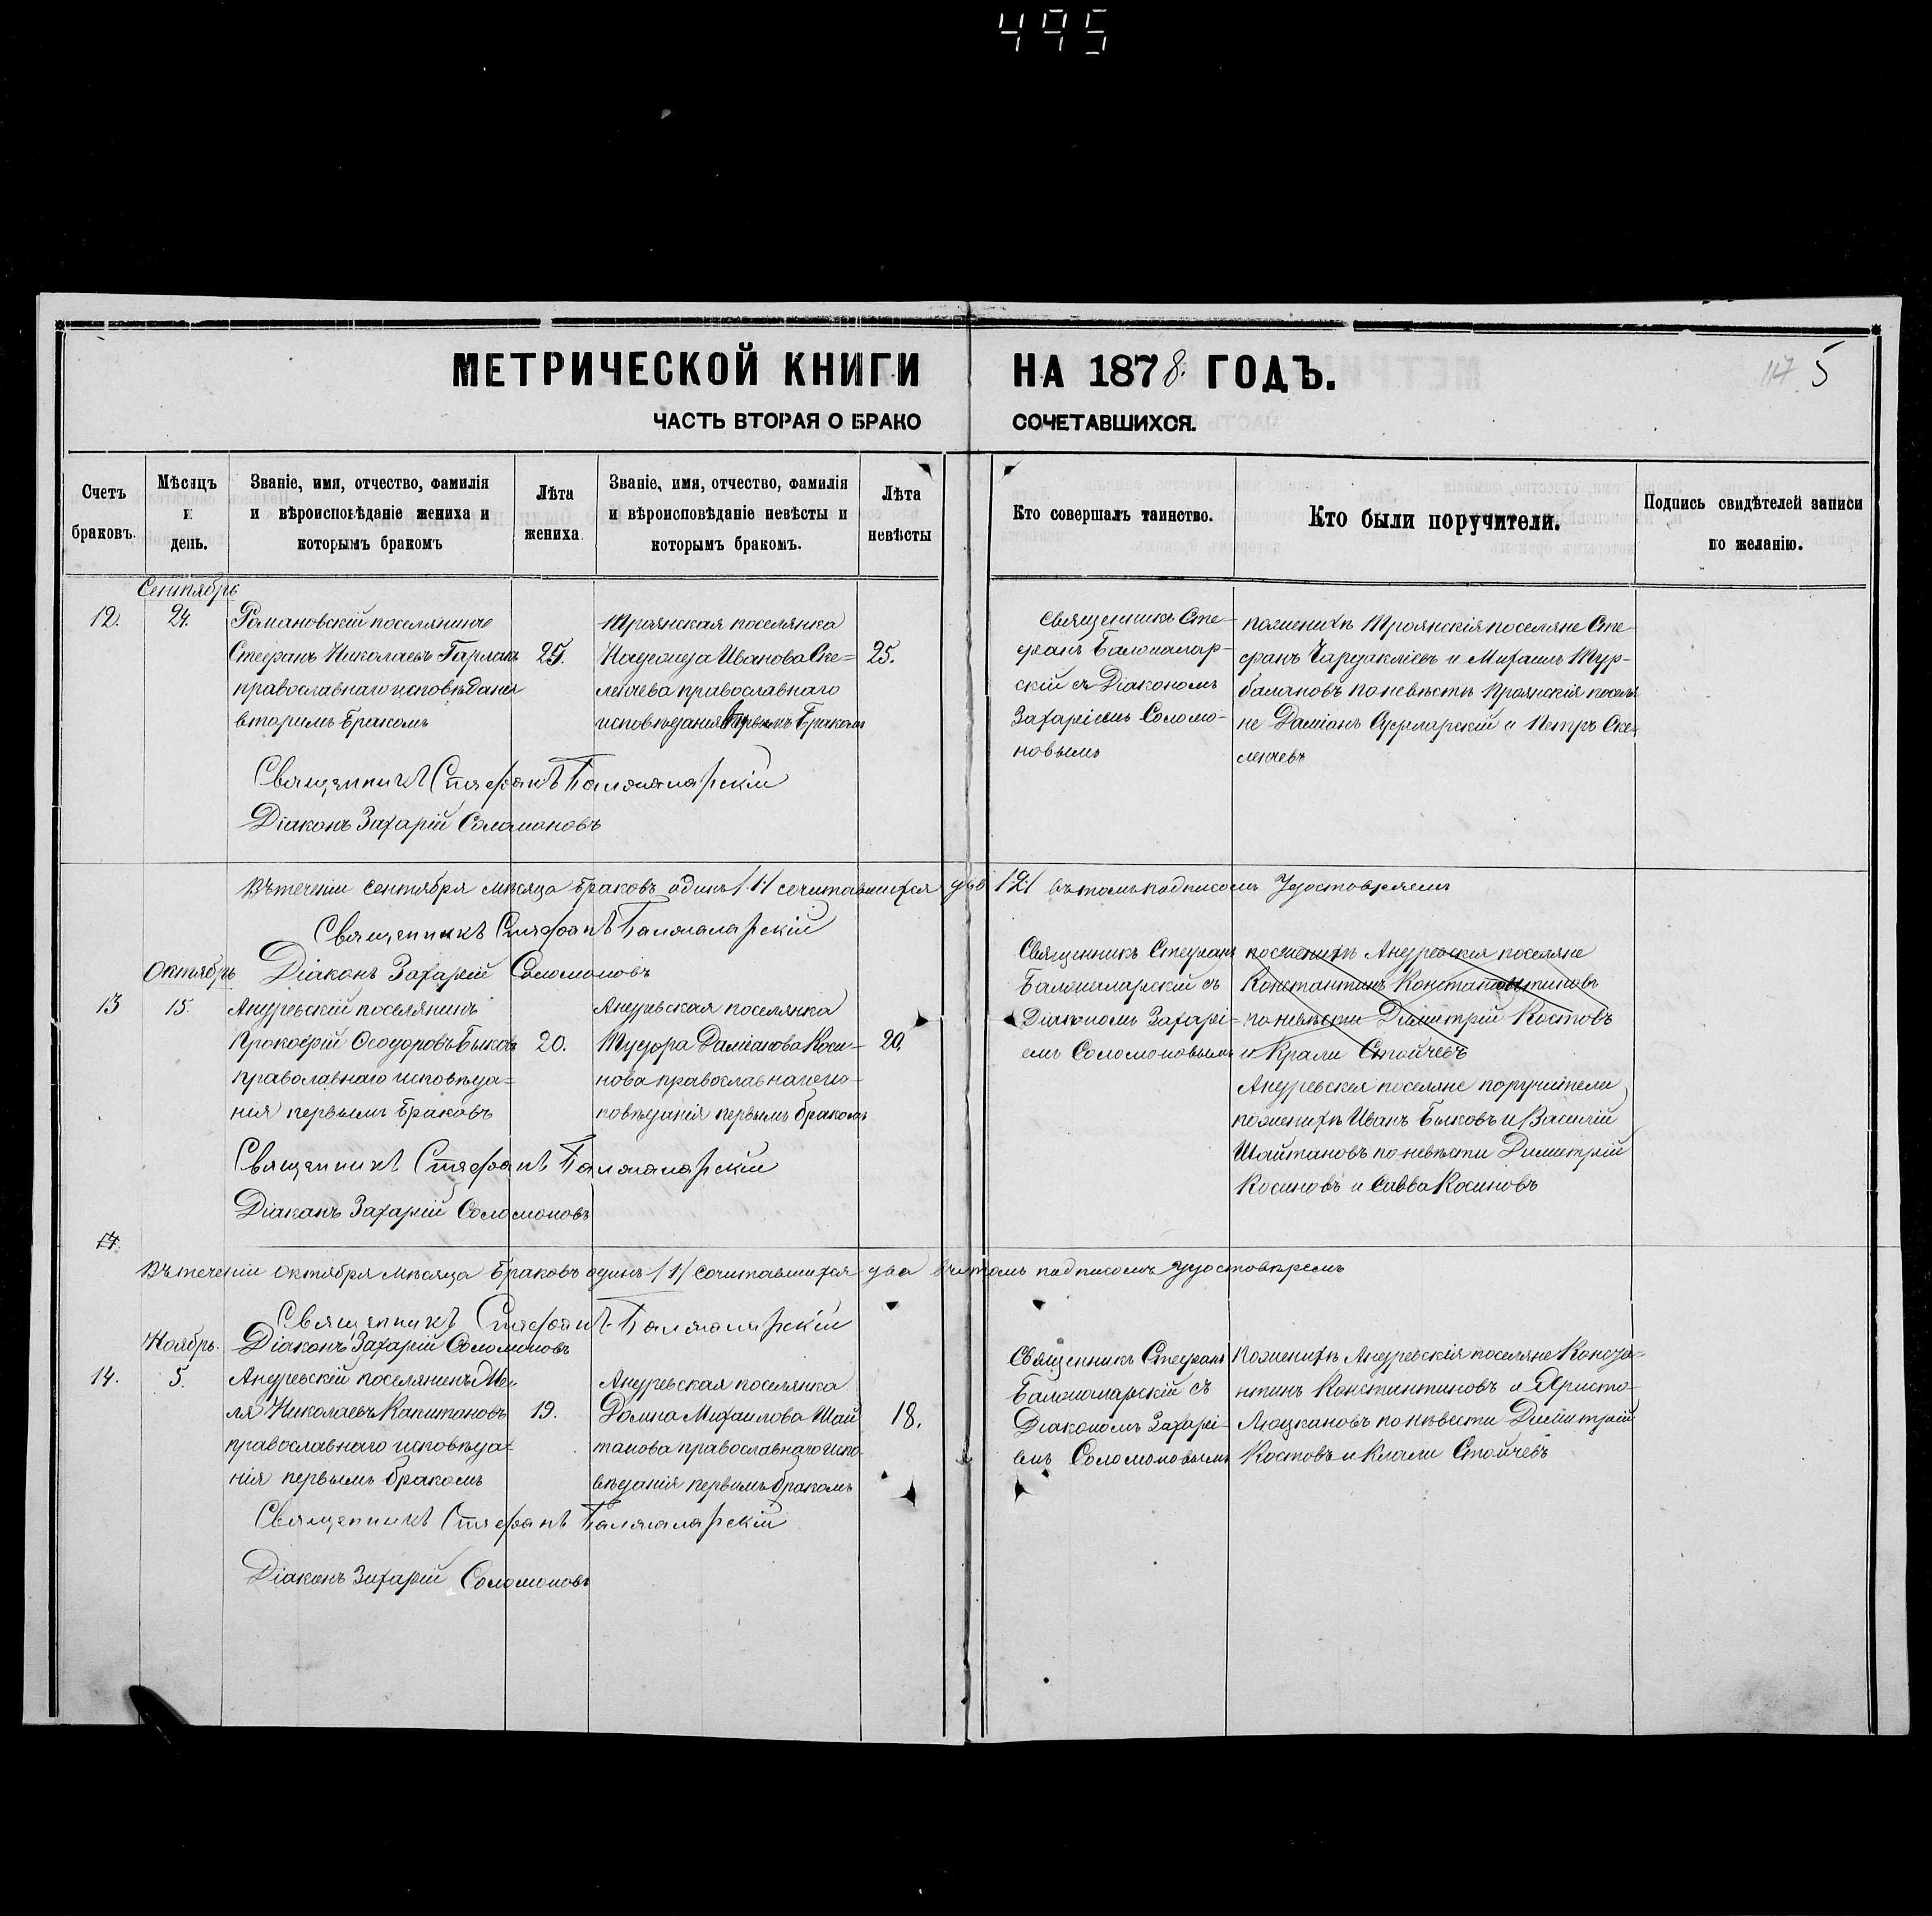 495
МЕТРИЧЕСКОЙ КНИГИ НА 1878. ГОДЪ.
117 5
ЧАСТЬ ВТОРАЯ О БРАКО СОЧЕТАВШИХСЯ.
Счетъ браковъ.
Мѣсяцъ и день.
Званіе, имя, отчество, фамилія и вѣроисповѣданіе жениха и которымъ бракомъ
Лѣта жениха.
Званіе, имя, отчество, фамилія и вѣроисповѣданіе невѣсты и которымъ бракомъ.
Лѣта невѣсты
Кто совершалъ таинство.
Кто были поручители.
Подпись свидѣтелей записи по желанію.
Сентябрь
12. 24.
Романовскій поселянинъ
Стефанъ Николаевъ Гарлакъ
православнаго исповѣданія
вторимъ бракомъ
25.
Троянская поселянка
Надежда Иванова Ске=
ленчева православнаго
исповѣданія первымъ бракомъ
25.
Священникъ Сте-
фанъ Балжаларр-
скій съ Діакономъ
Захаріемъ Соломо-
новымъ
поженихѣ Троянскія поселяне Сте
фанъ Чардакліевъ и Михаилъ Тур-
балановъ поневѣсти Троянскія поселя
не Даміанъ и Петръ Ске=
ленчевъ
Священникъ Стефанъ Балжаларскій
Діаконъ Захарій Соломоновъ
Вътеченіи сентября мѣсяца браковъ одинъ /1/ сочитавшихся два /2/ вътомъ подписомъ удостовѣряемъ
Священникъ Стефанъ Балжаларскій
Діаконъ Захарій Соломоновъ
Октябрь
13 15.
Андреевскій поселянинъ
Прокофій Ѳеодоровъ Быковъ
православнаго исповѣда=
нія первымъ браковъ
20.
Андреевская поселянка
Тудора Даміанова Коси-
нова православнаго ис-
повѣданія первымъ бракомъ
20.
Священникъ Стефанъ
Балжаларскій съ
Діакономъ Захарі-
емъ Соломоновымъ
поженихѣ Андреевскія поселяне
Константинъ Константиновъ
поневѣсти Димитрій Костовъ
и Крали Стойчевъ
Андреевскія поселяне поручители
поженихѣ Иванъ Быковъ и Василій
Шайтановъ поневѣсти Димитрій
Косиновъ и Савва Косиновъ
Священникъ Стефанъ Балжаларскій
Діаконъ Захарій Соломоновъ
14.
Вътеченіи октября мѣсяца браковъ одинъ /1/ сочитавшихся два вътомъ подписомъ удостовѣремъ
Священникъ Стефанъ Балжаларскій
Діаконъ Захарій Соломоновъ
Ноябрь.
14. 5.
Андреевскій поселянинъ Ми-
ля Николаевъ Капитановъ
православнаго исповѣда=
нія первымъ бракомъ
19.
Андреевская поселянка
Домна Михаилова Шай
танова православнаго испо
вѣданія первымъ бракомъ
18.
Священникъ Стефанъ
Балжаларскій съ
Діакономъ Захарі-
емъ Соломоновымъ
Поженихѣ Андреевскія поселяне Конста=
нтинъ Константиновъ и Христо-
Люцкановъ по нѣвести Димитрій
Костовъ и Крали Стойчевъ
Священникъ Стефанъ Балжаларскій
Діаконъ Захарій Соломоновъ